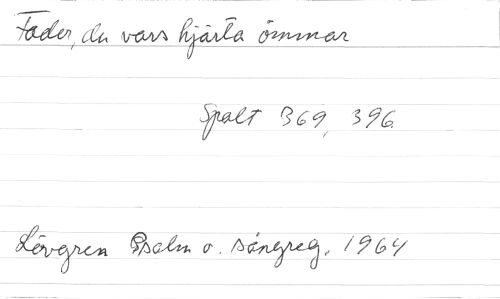 Fader, du vars hjärta ömmar
Spalt 369, 396
Lövgren Psalm o. sångreg. 1964